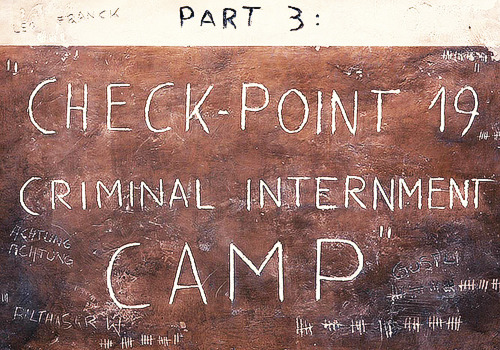 FRANCK
PART 3:
"CHECK-POINT 19
CRIMINAL INTERNMENT
CAMP"
ACHTUNG
ACHTUNG
BALTHASAR W